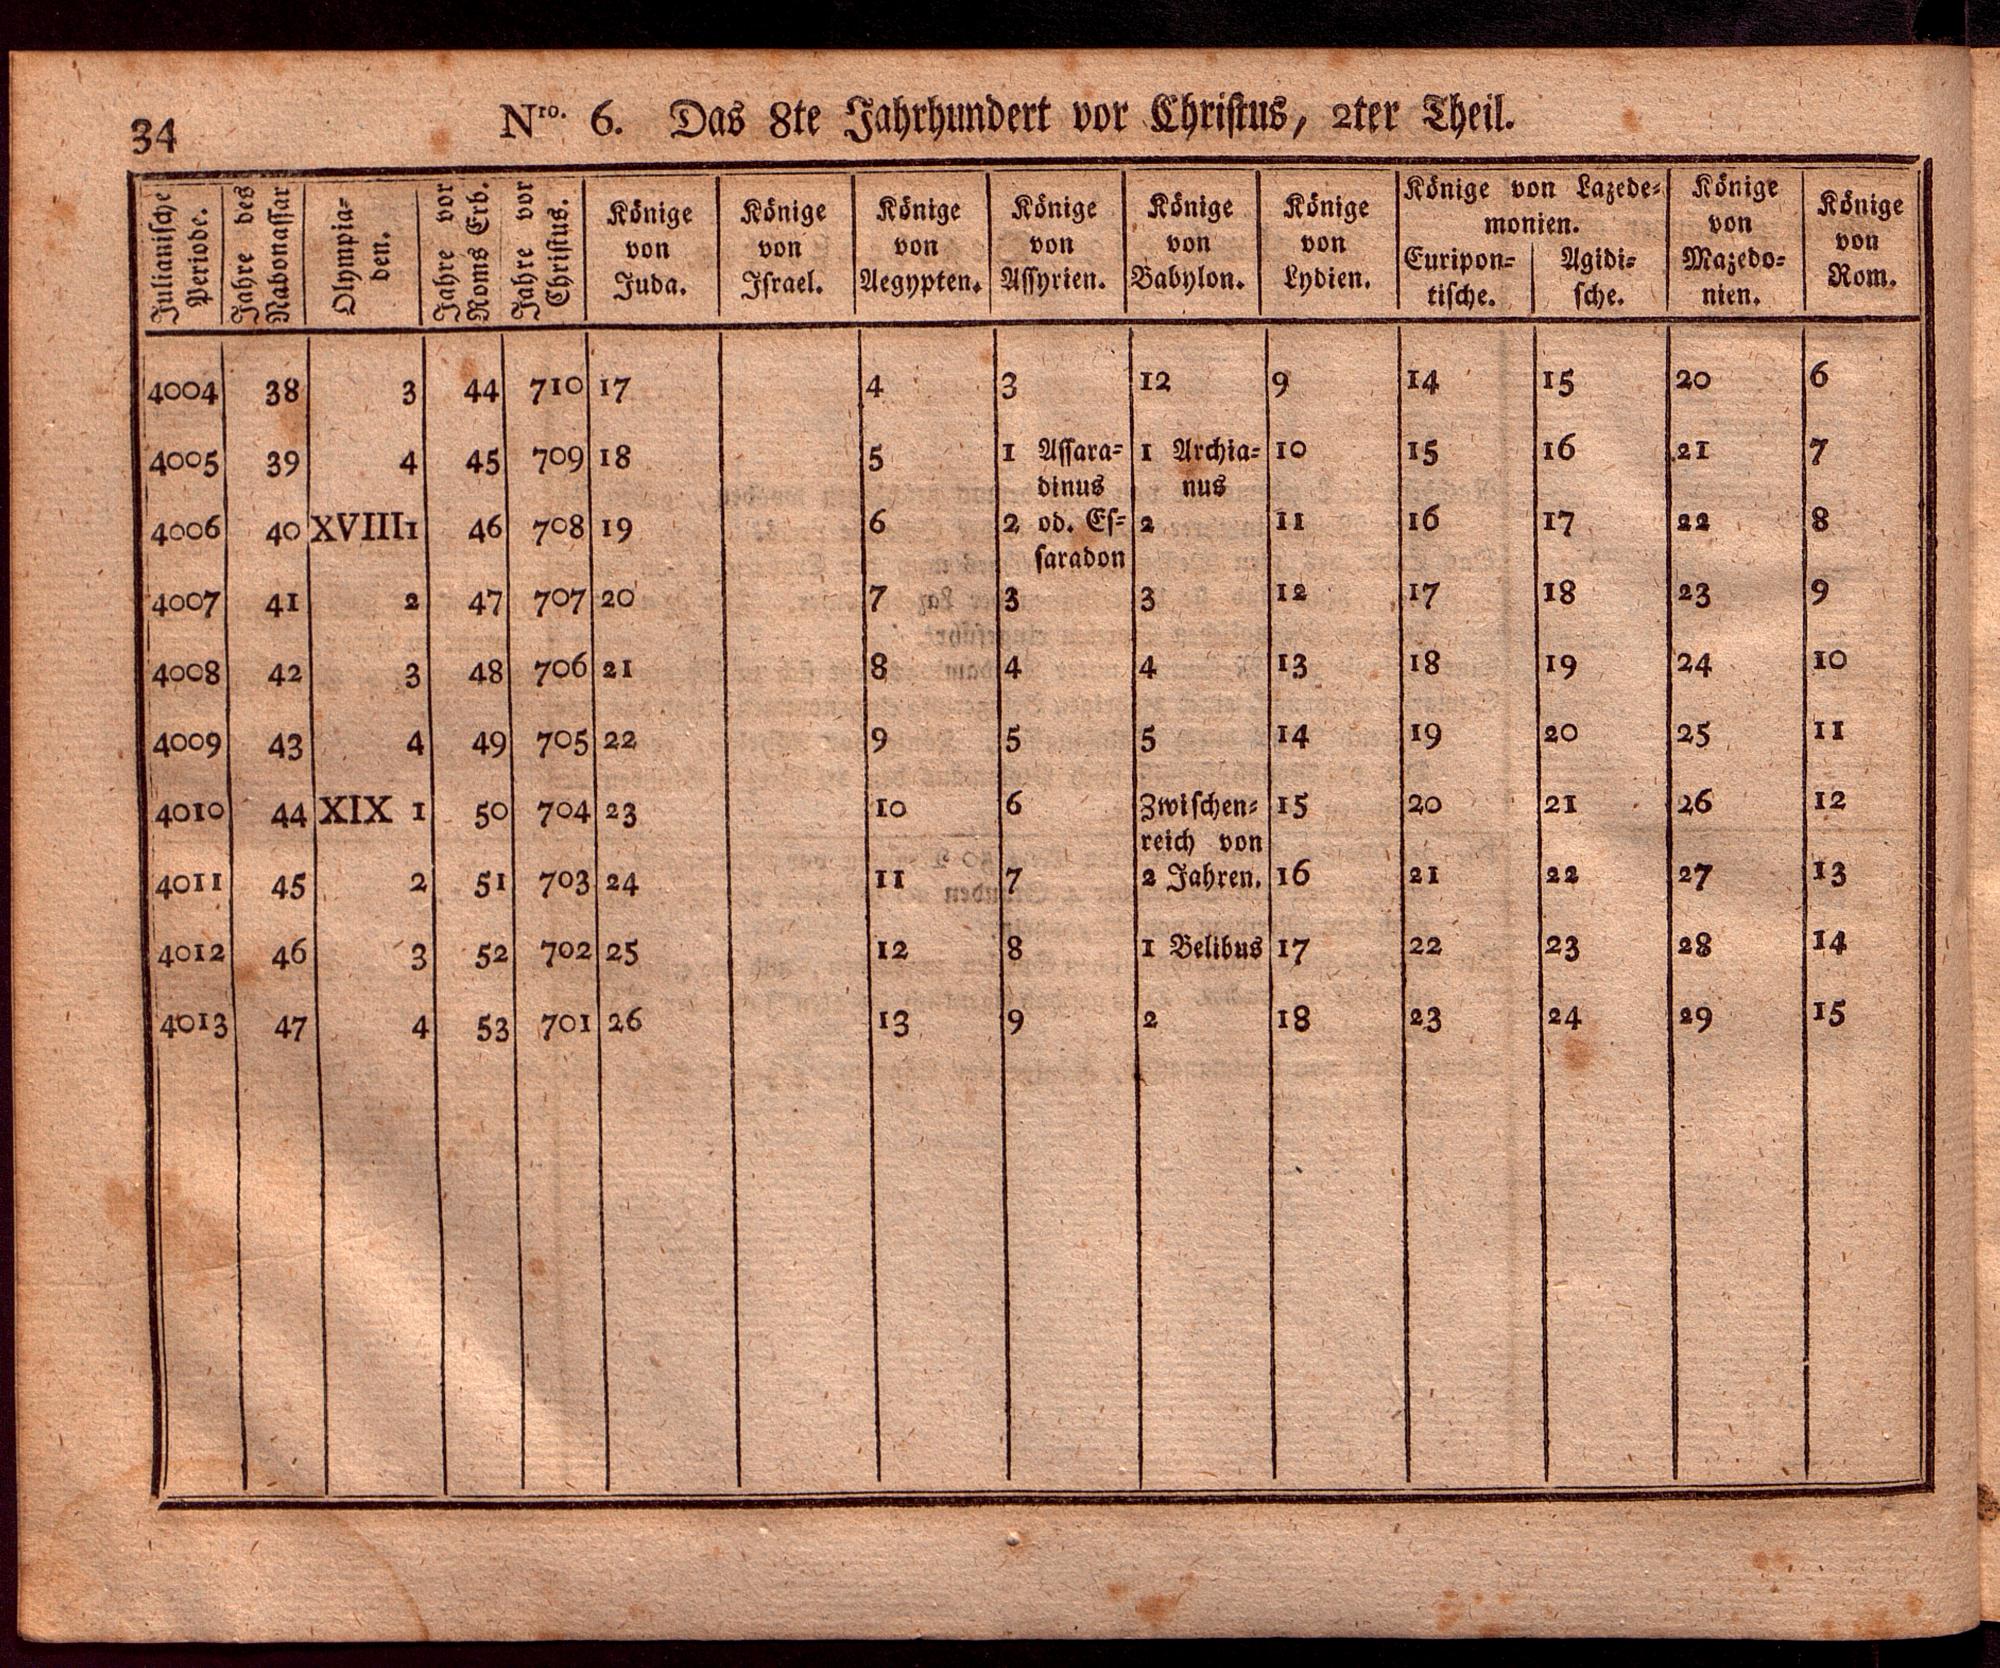 34
Nro. 6. Das 8te Jahrhundert vor Christus, 2ter Theil.
Julianische Periode. | Jahre des Nabonassar | Olympia= den. | Jahre vor Roms Erb. | Jahre vor Christus. | Könige von Juda. | Könige von Israel. | Könige von Aegypten. | Könige von Assyrien. | Könige von Babylon. | Könige von Lydien. | Könige von Lazede= monien. Euripon= tische. | Agidi= sche. | Könige von Mazedo= nien. | Könige von Rom.
4004 38 3 44 710 17 4 3 12 9 14 15 20 6
4005 39 4 45 709 18 5 1 Assara= 1 Archia= 10 15 16 21 7
dinus nus
4006 40 XVIII 1 46 708 19 6 2 od. Es= 2 11 16 17 22 8
saradon
4007 41 2 47 707 20 7 3 3 12 17 18 23 9
4008 42 3 48 706 21 8 4 4 13 18 19 24 10
4009 43 4 49 705 22 9 5 5 14 19 20 25 11
4010 44 XIX 1 50 704 23 10 6 Zwischen= 15 20 21 26 12
reich von
4011 45 2 51 703 24 11 7 2 Jahren. 16 21 22 27 13
4012 46 3 52 702 25 12 8 1 Belibus 17 22 23 28 14
4013 47 4 53 701 26 13 9 2 18 23 24 29 15